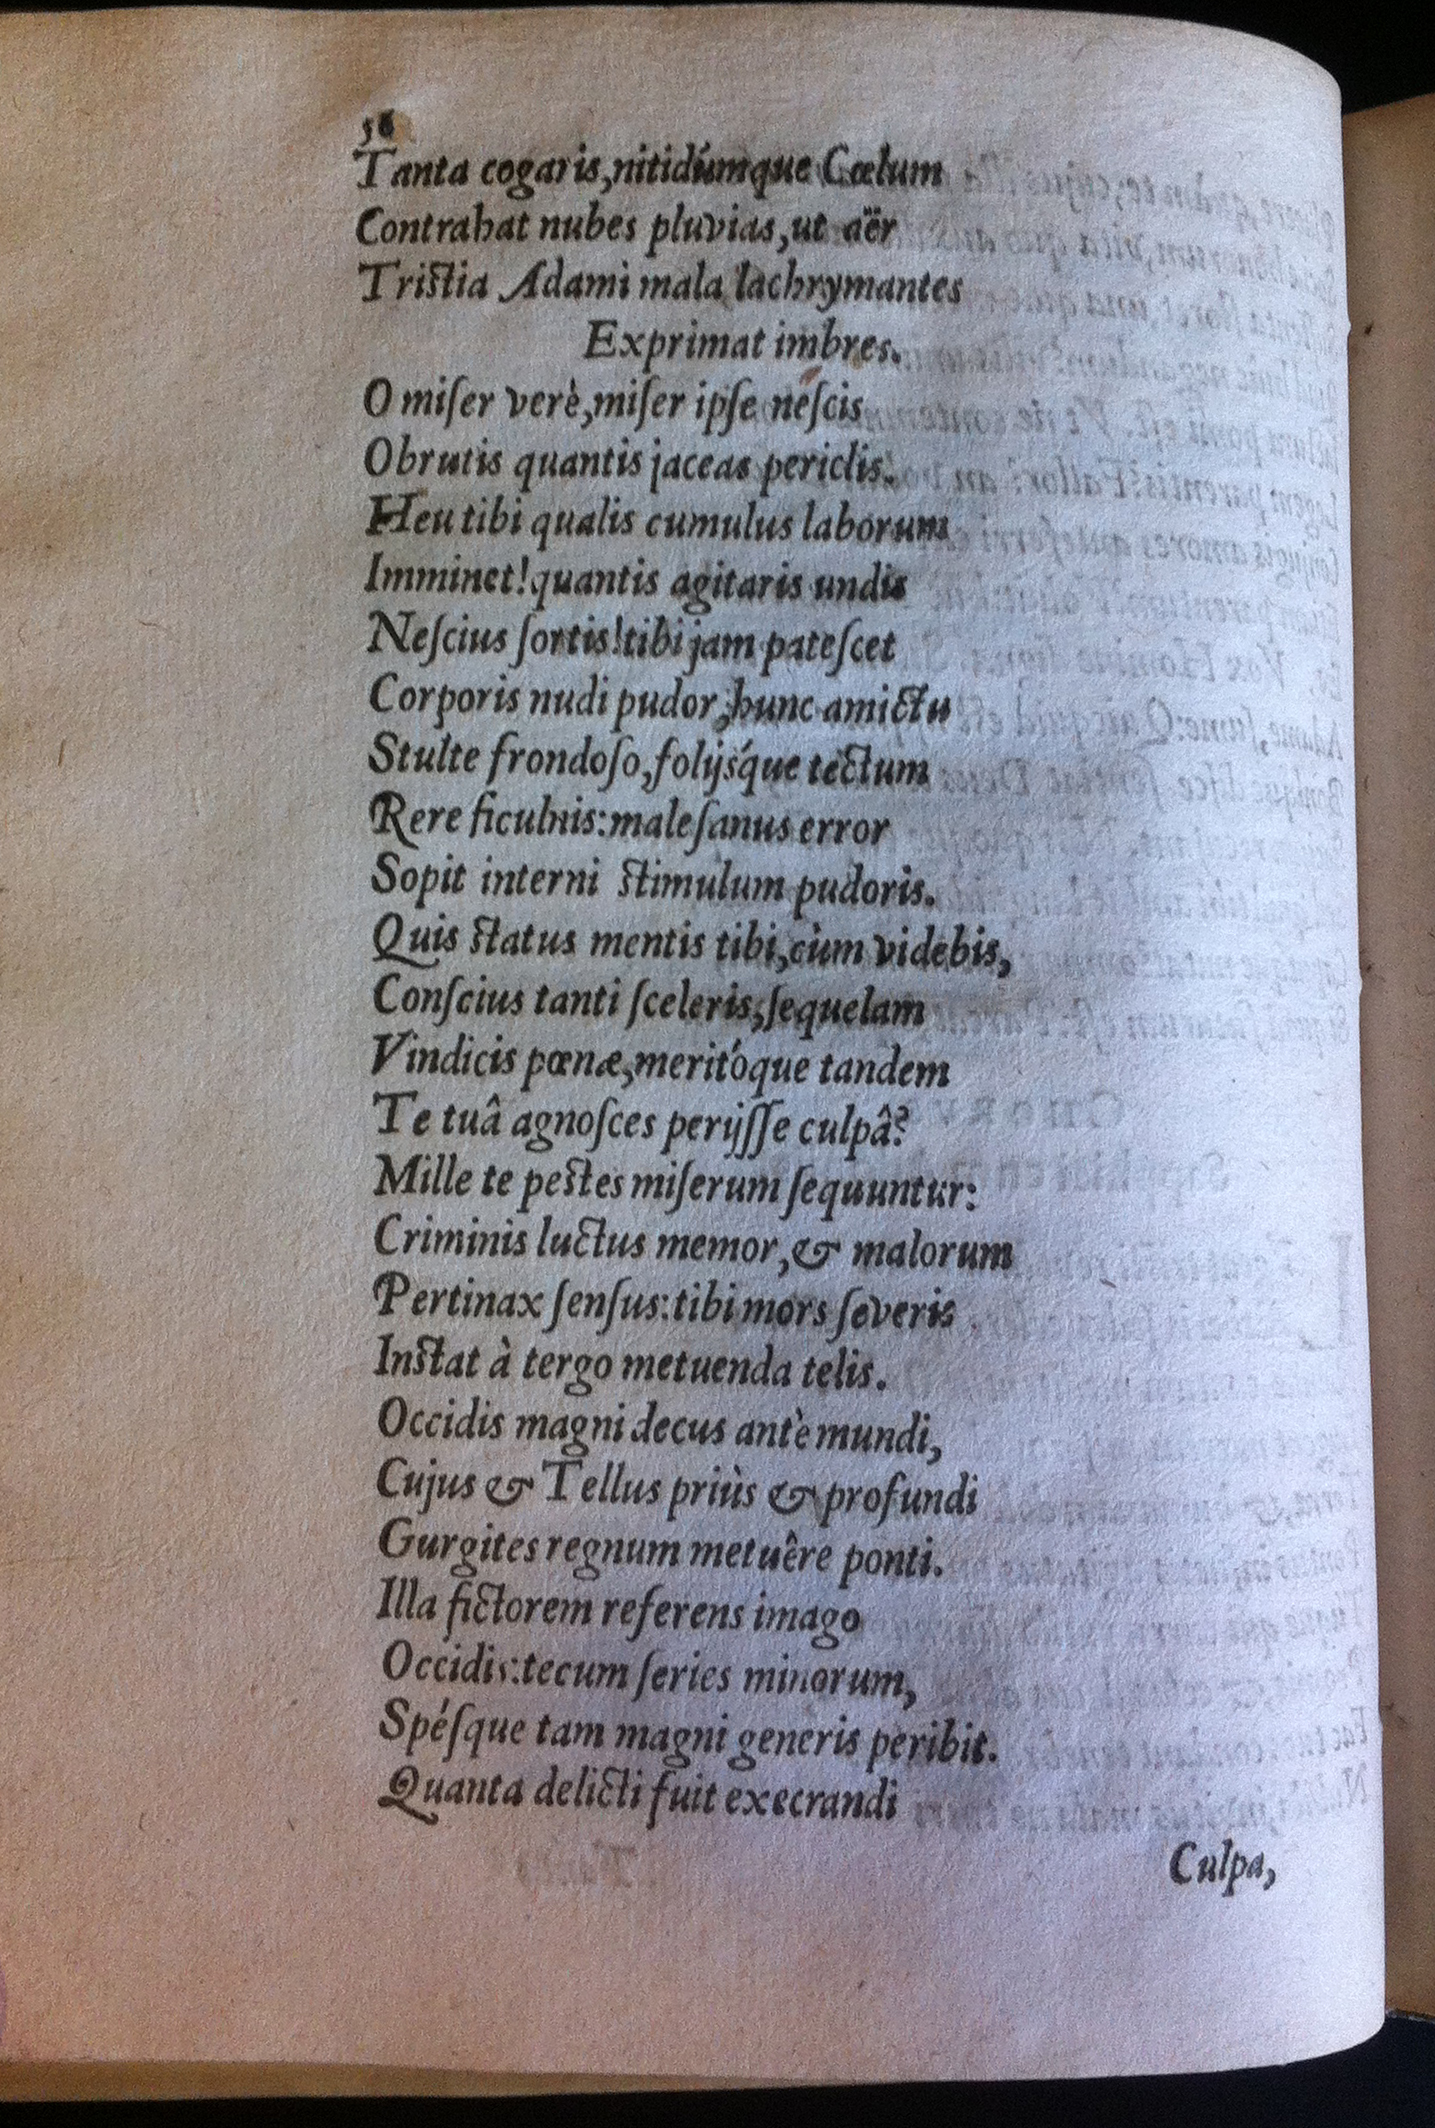 56
Tanta cogaris, nitidúmque Cœlum
Contrahat nubes pluvias, ut aër
Tristia Adami mala lachrymantes
Exprimat imbres.
O miſer verè, miſer ipſe neſcis
Obrutis quantis jaceas periclis.
Heu tibi qualis cumulus laborum
Imminet! quantis agitaris undis
Neſcius ſortis! tibi jam pateſcet
Corporis nudi pudor, hunc amictu
Stulte frondoſo, folijsq́ue tectum
Rere ficulnis: maleſanus error
Sopit interni stimulum pudoris.
Quis status mentis tibi, cùm videbis,
Conſcius tanti ſceleris, ſequelam
Vindicis pœnæ, meritóque tandem
Te tuâ agnoſces perijſſe culpâ?
Mille te pestes miſerum ſequuntur:
Criminis luctus memor, & malorum
Pertinax ſenſus: tibi mors ſeveris
Instat à tergo metuenda telis.
Occidis magni decus antè mundi,
Cujus & Tellus priùs & profundi
Gurgites regnum metuêre ponti.
Illa fictorem referens imago
Occidis: tecum ſeries minorum,
Spéſque tam magni generis peribit.
Quanta delicti fuit execrandi
Culpa,